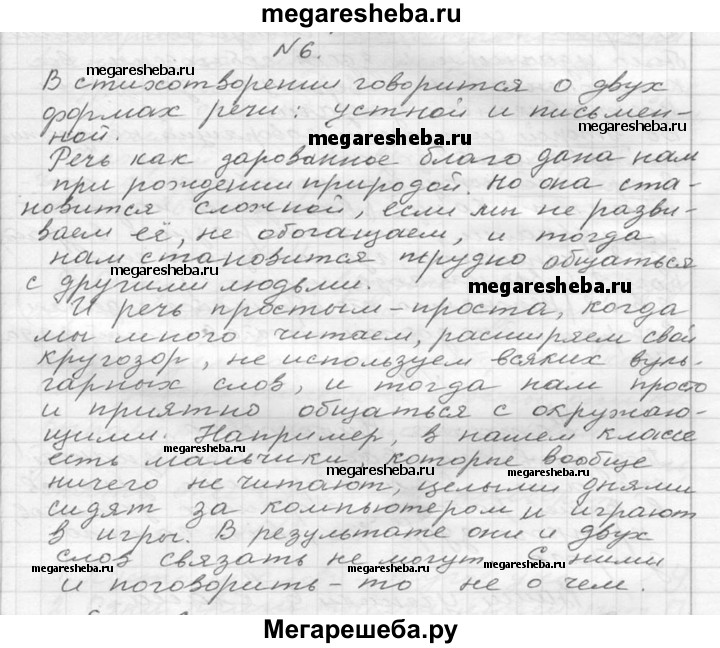 megaresheba.ru
N6.
В стихотворении говорится о двух
megaresheba.ru
формах речи: устной и письмен-
megaresheba.ru
ной.
megaresheba.ru
Речь как дарованное благо дана нам
при рождении природой. Но она ста-
новится сложной, если мы не разви-
ваем её, не обогащаем, и тогда
нам становится трудно общаться
megaresheba.ru
с другими людьми.
megaresheba.ru
И речь простым-проста, когда
мы много читаем, расширяем свой
кругозор, не используем всяких вуль-
megaresheba.ru
гарных слов, и тогда нам просто
и приятно общаться с окружаю-
щими. Например, в нашем классе
megaresheba.ru
есть мальчики, которые вообще
megaresheba.ru
ничего не читают, целыми днями
сидят за компьютером и играют
megaresheba.ru
в игры. В результате они и двух
слов связать не могут. С ними
megaresheba.ru
и поговорить-то не о чем.
Мегарешеба.ру